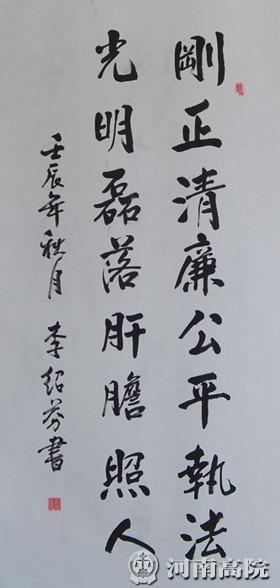 剛正清廉公平執法
光明磊落肝膽照人
壬辰年秋月 李绍芬書
河南高院